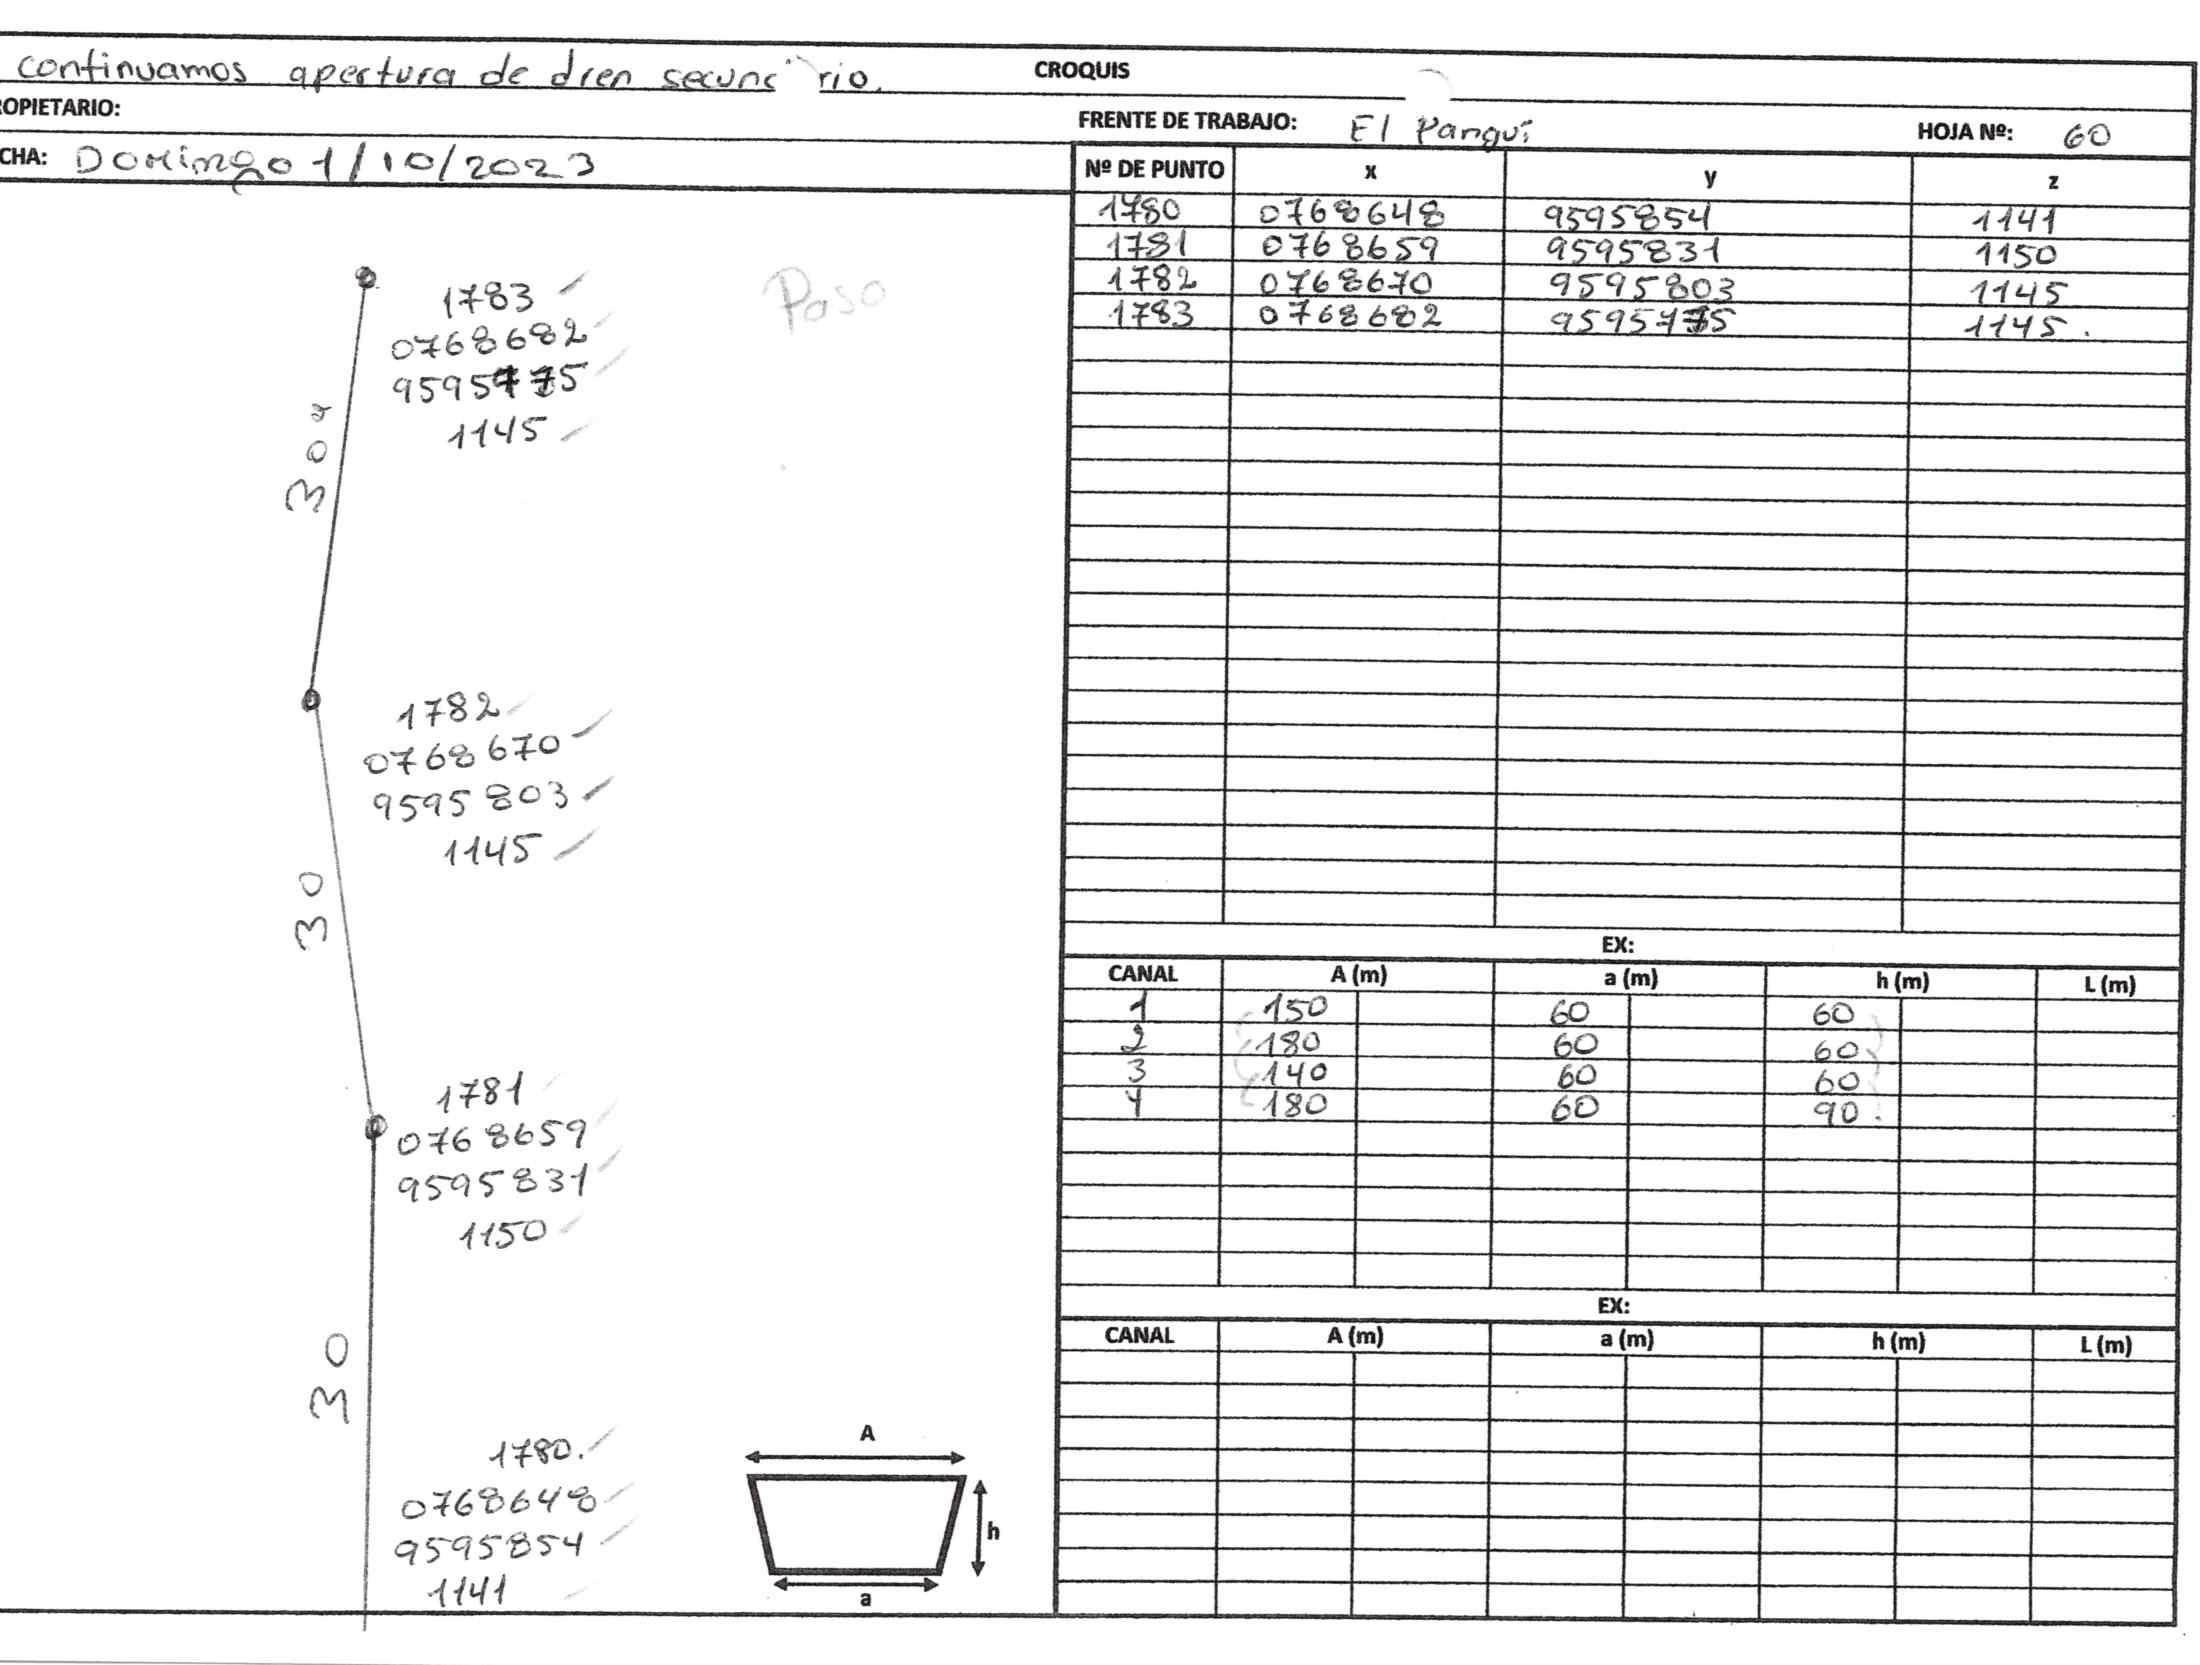 continuamos apertura de dren secund rio. CROQUIS
ROPIETARIO:
FRENTE DE TRABAJO: El Pangui HOJA Nº: 60
CHA: Domingo 1/10/2023
Nº DE PUNTO x y z
1780 0768648 9595854 1141
1781 0768659 9595831 1150
1782 0768670 9595803 1145
1783 0768682 9595775 1145.
1783
0768682
9595775
1145
Paso
30
1782
0768670
9595803
1145
30
1781
0768659
9595831
1150
30
1780.
0768648
9595854
1141
A
h
a
EX:
CANAL A (m) a (m) h (m) L (m)
1 150 60 60
2 180 60 60
3 140 60 60
4 180 60 90.
EX:
CANAL A (m) a (m) h (m) L (m)